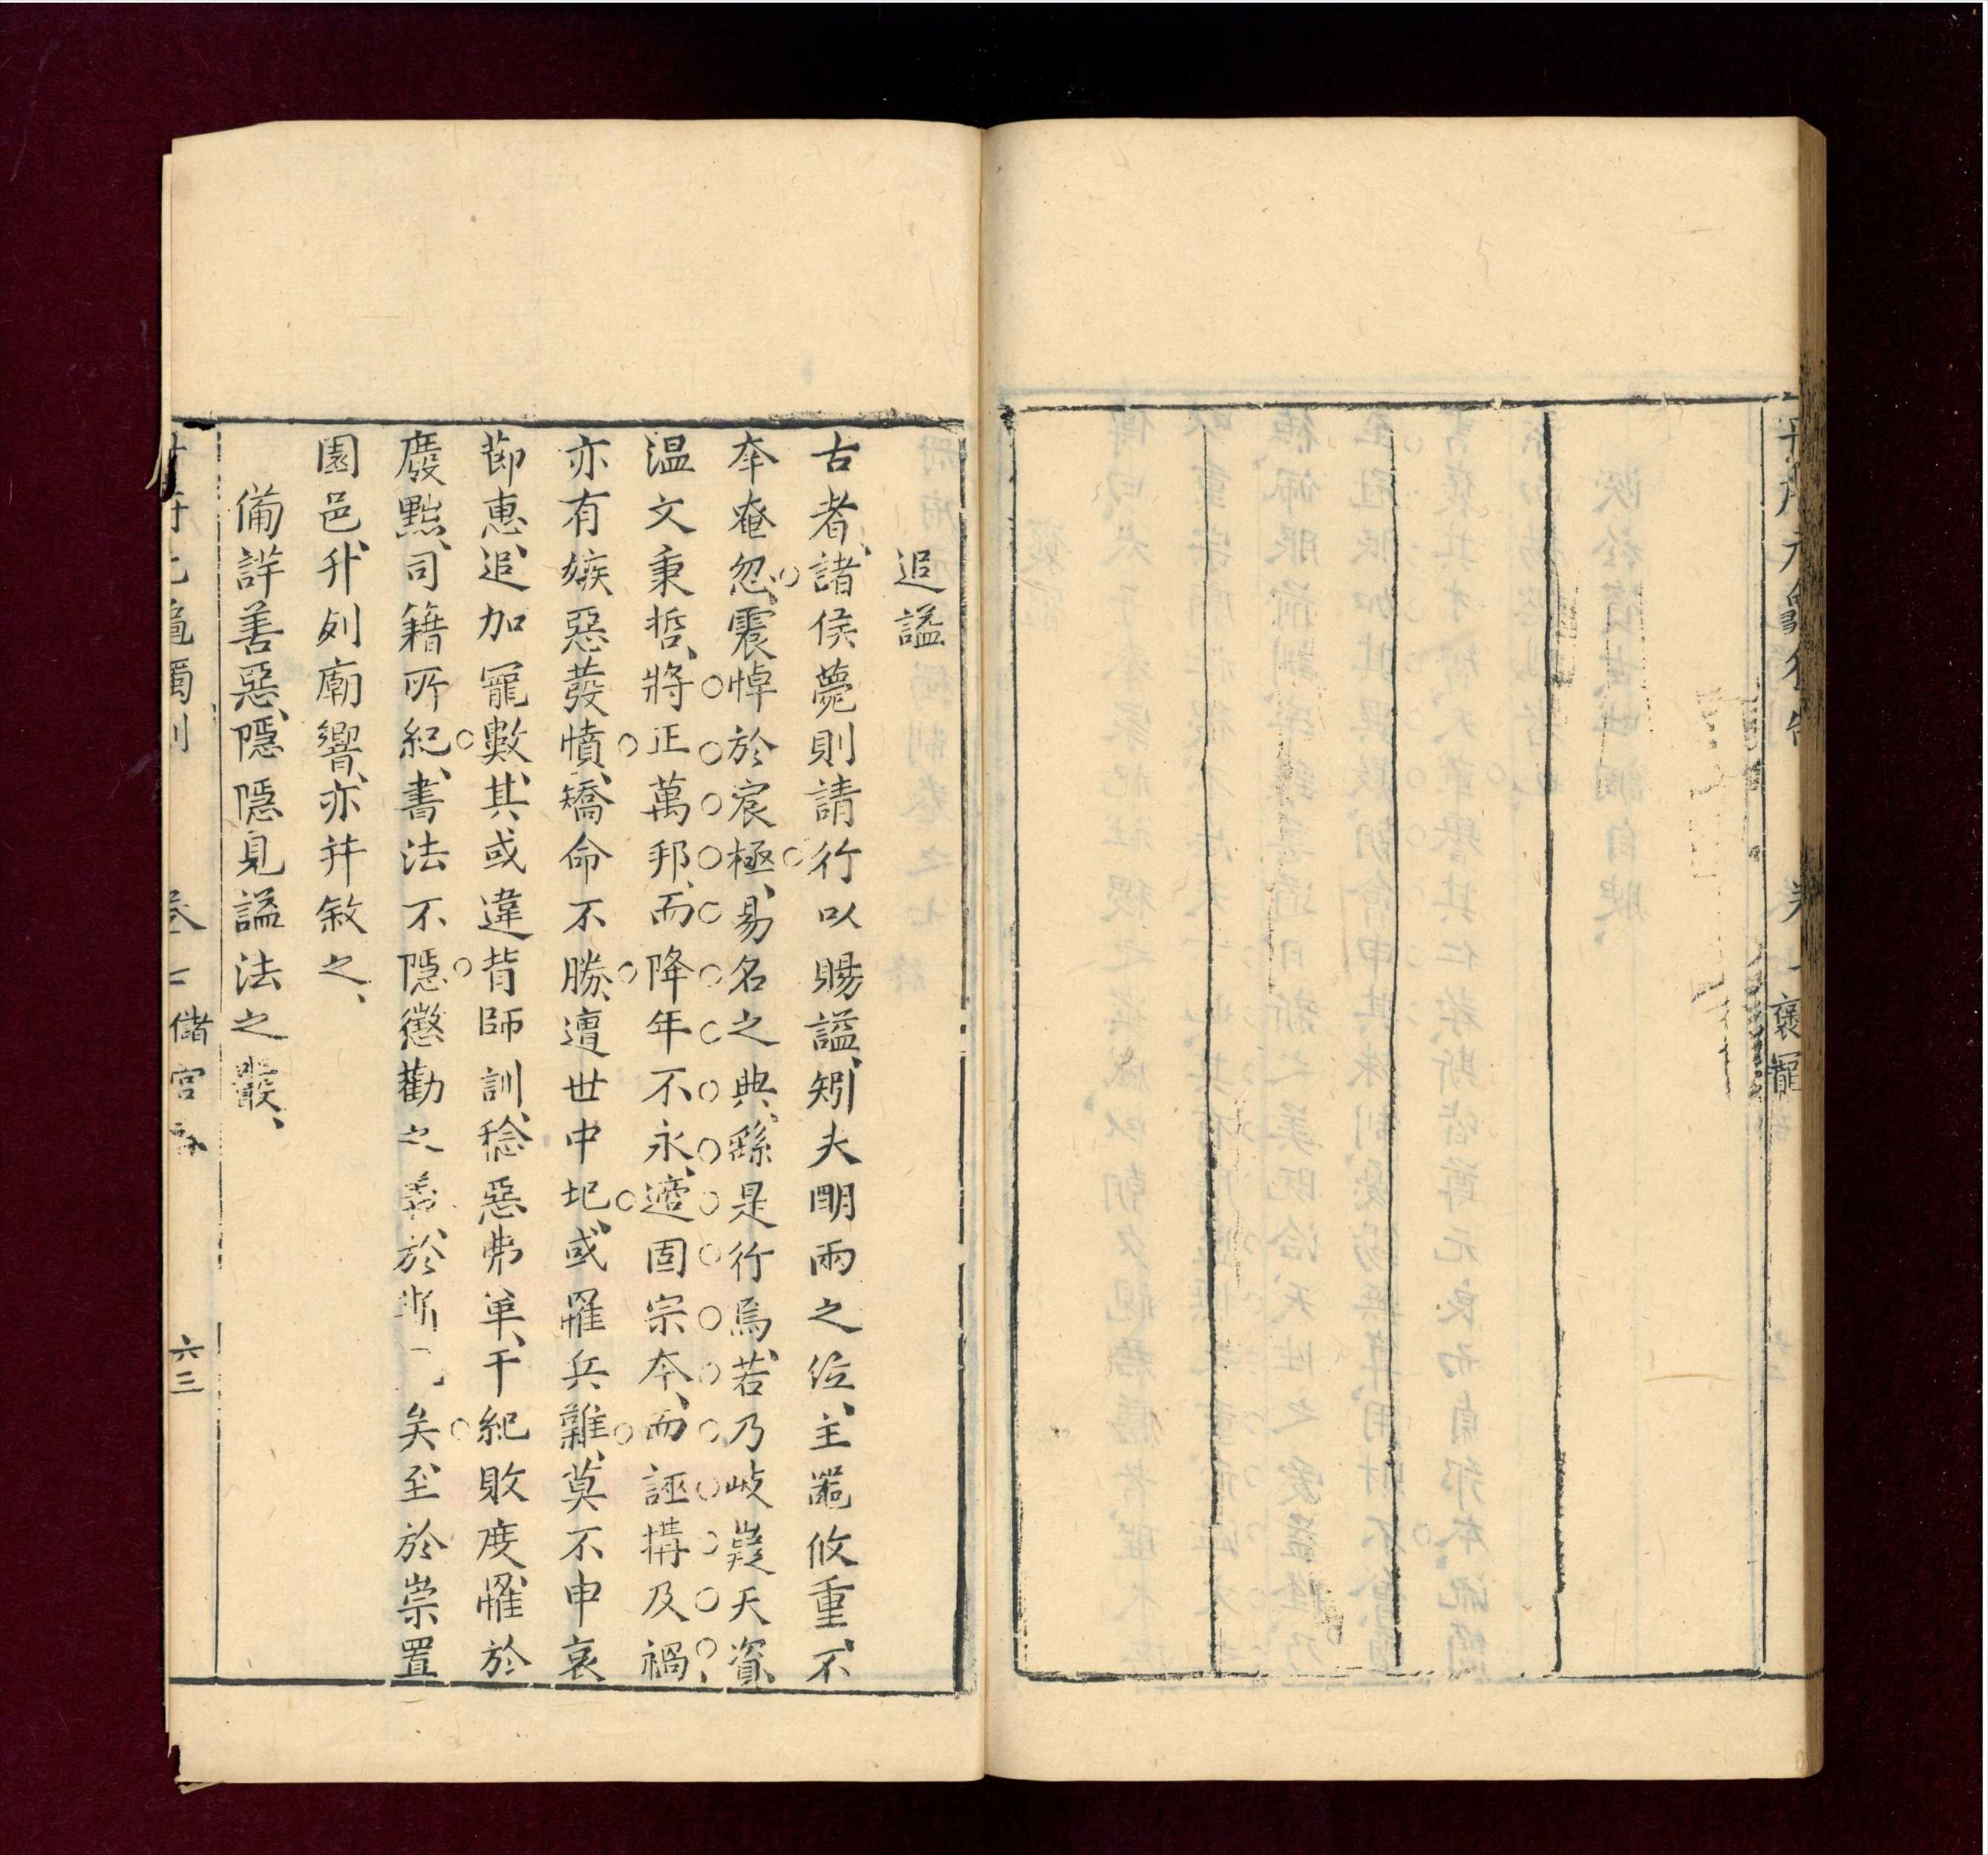 褒寵
追謚
古者、諸侯薨則請行以賜謚、矧夫明兩之位、主噐攸重、不
夲奄忽、震悼於宸極、易名之典、繇是行焉、若乃岐嶷天資、
温文秉哲、將正萬邦、而降年不永、遽固宗夲、而誣搆及禍、
亦有嫉惡發憤、矯命不勝、遭世中圮、或罹兵難、莫不申哀
節惠、追加寵數、其或違背師訓、稔惡弗悛、干紀敗度、罹於
廢黜、司籍所紀、書法不隱、懲勸之義於 矣至於崇置
園邑、升列廟響、亦并敘之、
備詳善惡、隱隱見謚法之嚴、
卷七 儲宮部 六三